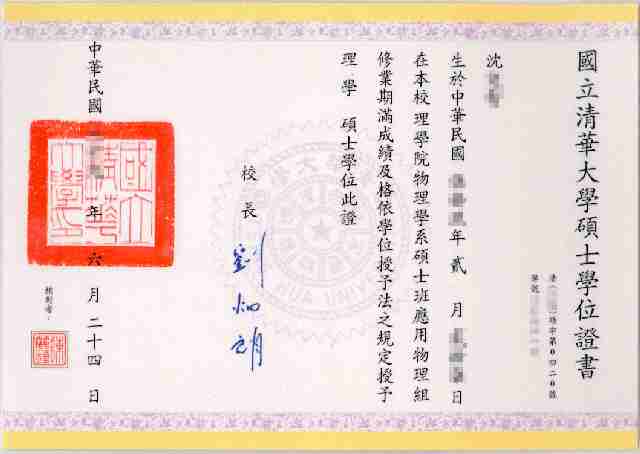 國立清華大學碩士學位證書
碩字第0420號
學號
沈
生於中華民國 年貳月 日
在本校理學院物理學系碩士班應用物理組
修業期滿成績及格依學位授予法之規定授予
理學碩士學位此證
校長 劉炯朗
中華民國 年六月二十四日
核對者：
國立清華大學印